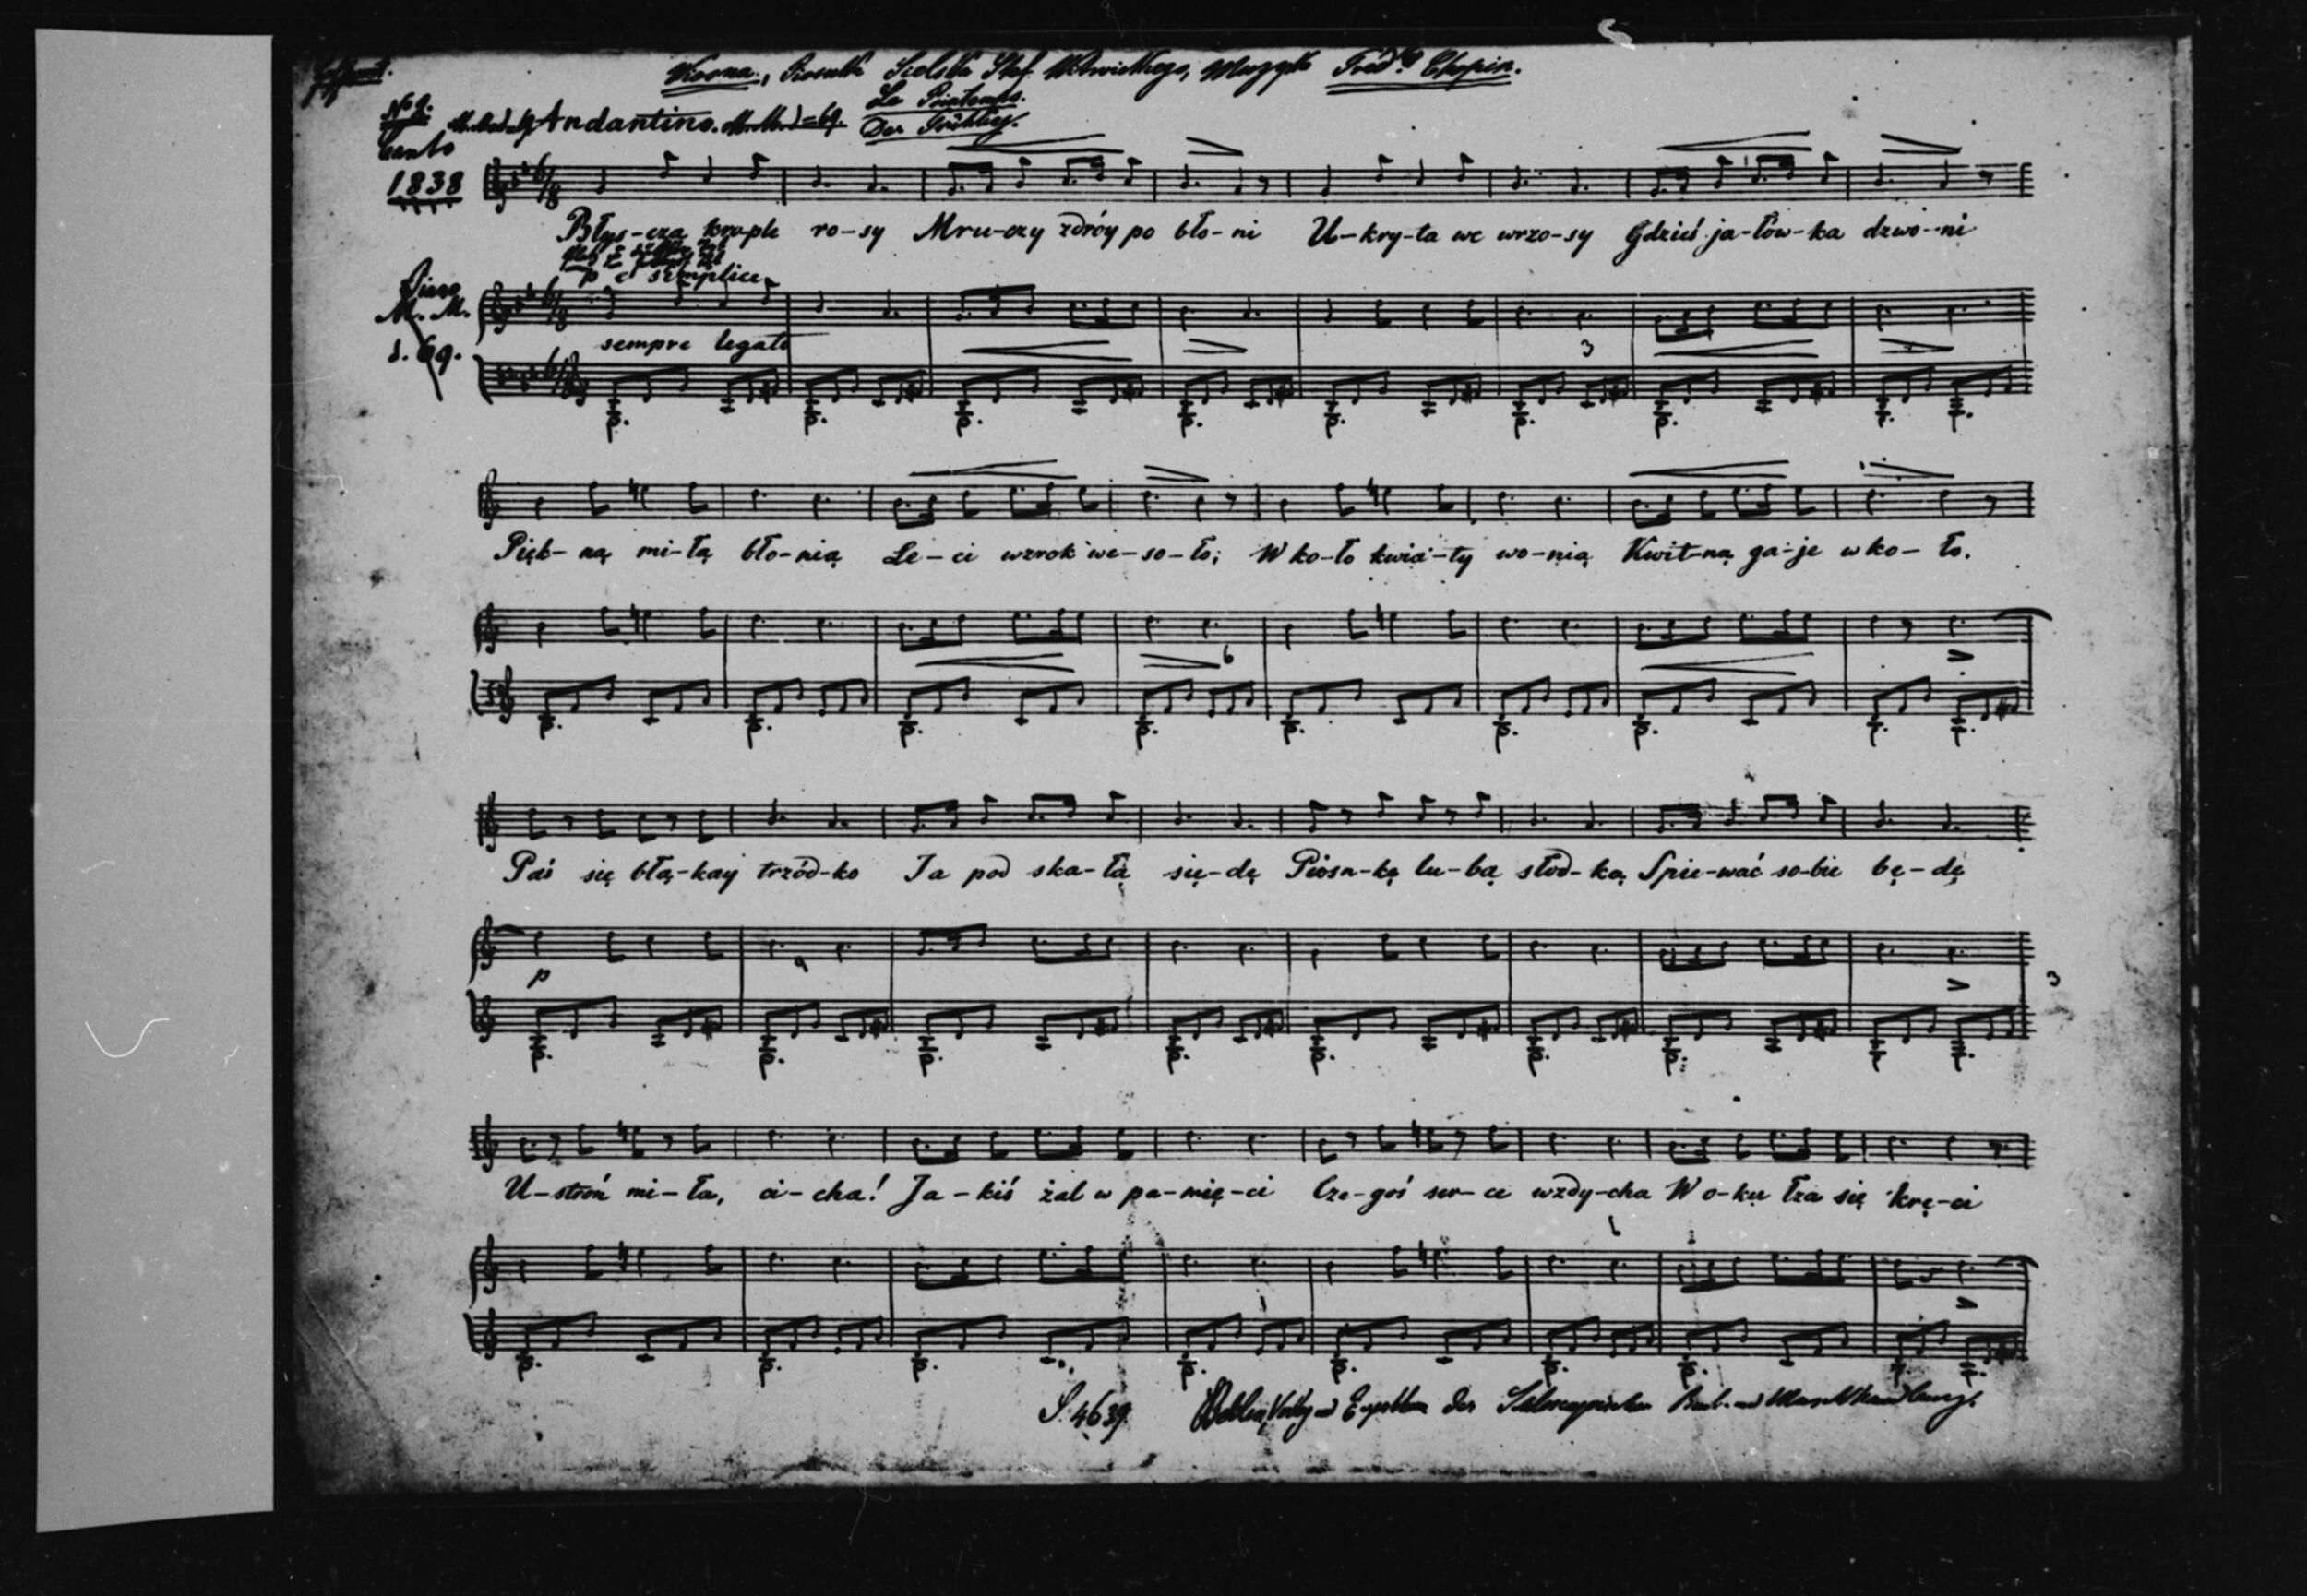 Wiosna., Piosnka Sielska Stef. Witwickiego, Muzyka Fréd. Chopin.
No 2. Andantino. M.M. ♩.=69. Le Printemps.
Der Frühling.
Canto
1838
Błys-czą krople ro-sy Mru-czy zdróy po bło-ni U-kry-ta we wrzo-sy Gdzieś ja-łów-ka dzwo-ni
p e semplice
Piano
M. M.
♩. 69.
sempre legato
3
Pięk-ną mi-łą bło-nią Le-ci wzrok we-so-ło; W ko-ło kwia-ty wo-nią Kwit-ną ga-je w ko-ło.
6
Paś się błą-kay trzód-ko Ja pod ska-łą się-dę Piosn-kę lu-bą słod-ką Spie-wać so-bie bę-dę
p
3
U-stroń mi-ła, ci-cha! Ja-kiś żal w pa-mię-ci Cze-goś ser-ce wzdy-cha W o-ku łza się krę-ci
S. 4639. Berlin, Verlag und Eigenthum der Schlesinger'schen Buch- und Musikhandlung.